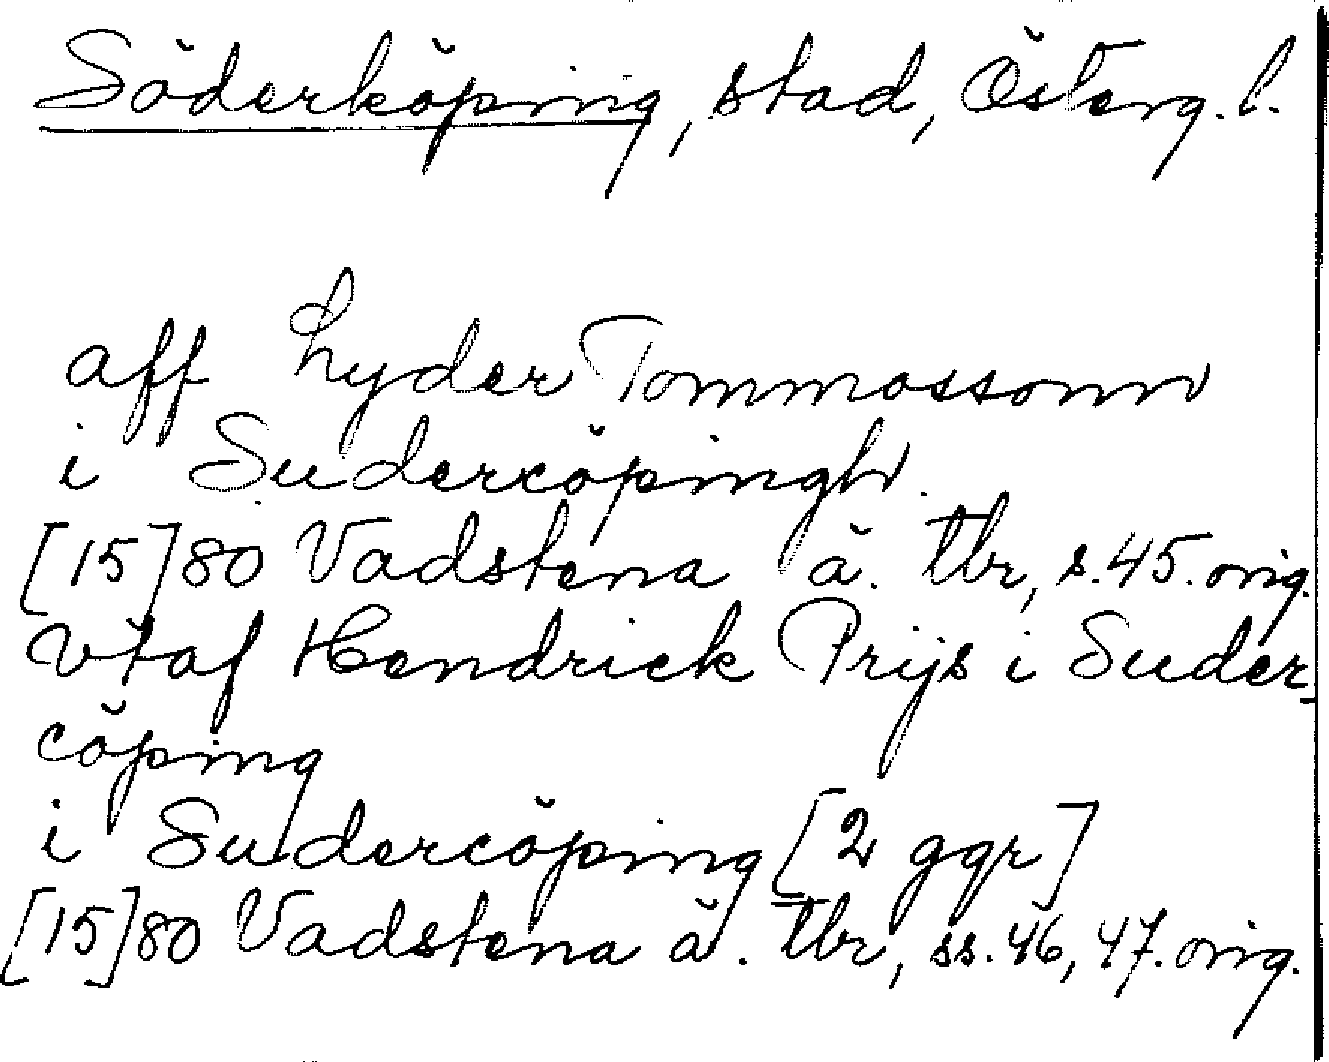 Söderköping, stad, Österg. l.
aff Lyder Tommossonn
i Sudercöpingh.
[15]80 Vadstena ä. tbr, s. 45. orig.
vtaf Hendrick Prijs i Suder-
cöping
i Sudercöping [2 ggr]
[15]80 Vadstena ä. tbr, ss. 46, 47. orig.